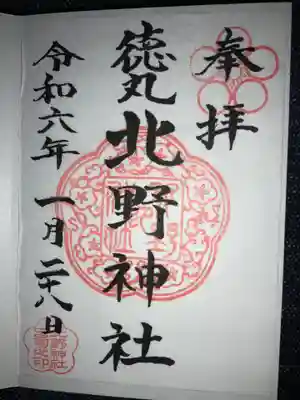 奉拝
徳丸北野神社
令和六年 一月二十八日